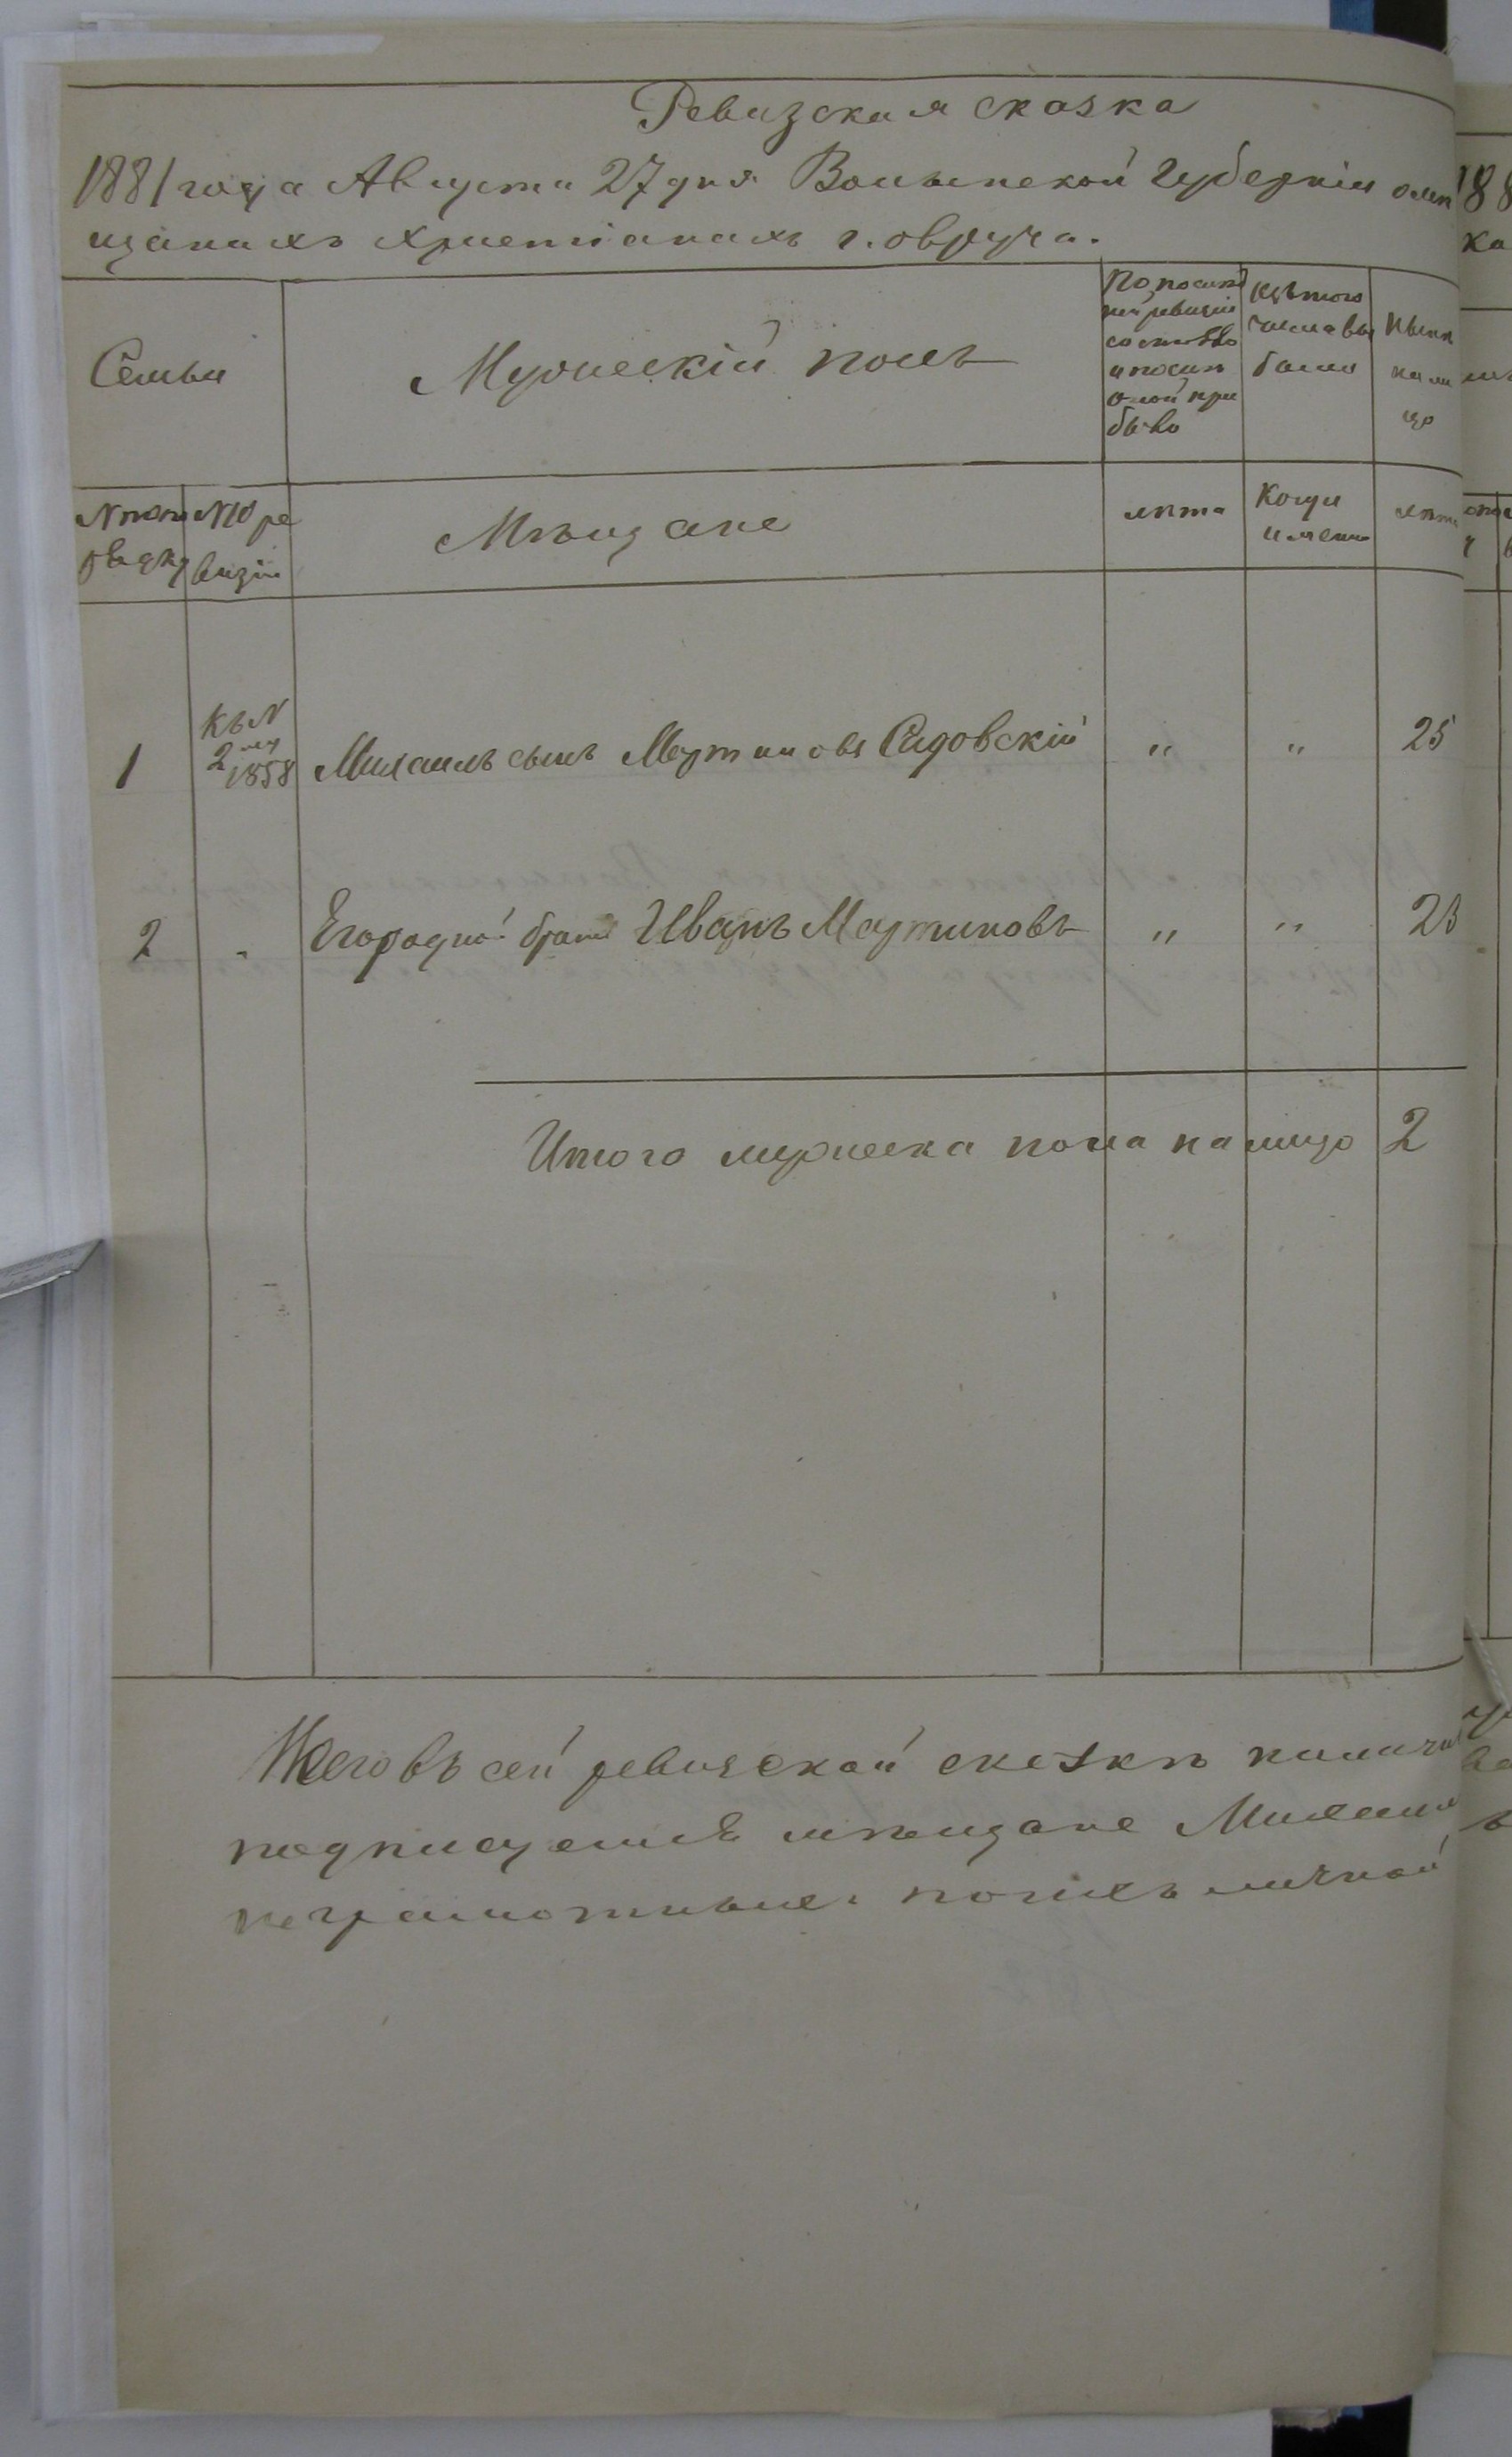 Ревизская сказка
1881 года Августа 27 дня Волынской Губернiи о мѣ
щанахъ христiанахъ г. овруча.
Семьи
Мужескiй полъ
По послѣд
ней ревизiи
состояло
и послѣ
оной при
было
Изъ того
числа вы
было
Нынѣ
на ли
цо
№ по по
рядку
№ по ре
визiи
Мѣщане
лѣта
Когда
именно
лѣта
1
Къ №
2
1858
Михаилъ сынъ Мартиновъ Садовскiй
"
"
25
2
Его родной братъ Иванъ Мартиновъ
"
"
23
Итого мужеска пола налицо
2
Всего въ сей ревизской сказкѣ
мѣщане
неграмотные личной